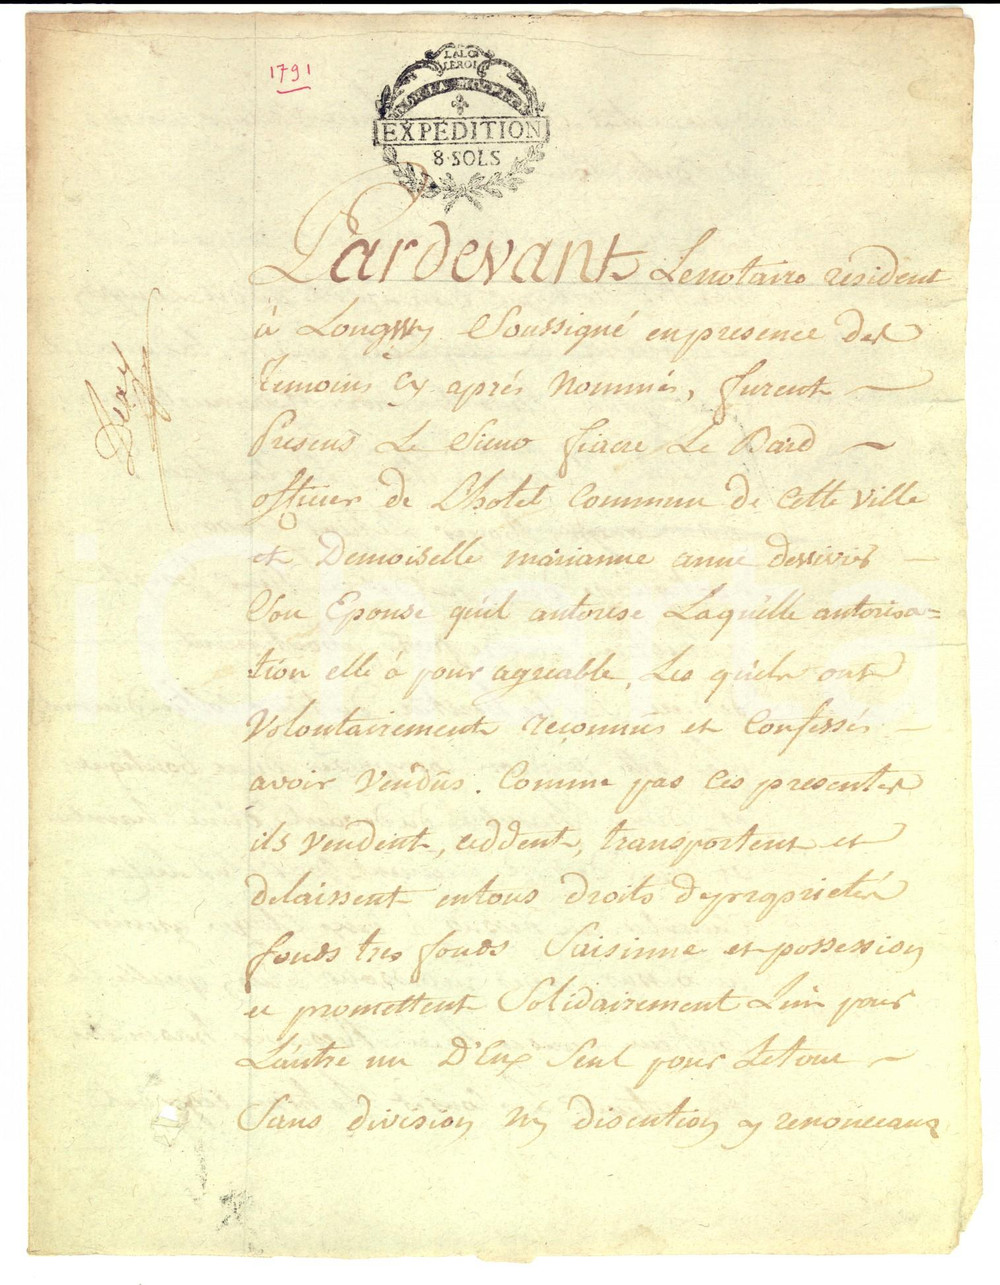 1791
LA LOI
LE ROI
EXPÉDITION
8 SOLS
Pardevant Le notaire résident
à Longwy Soussigné en presence des
temoins cy aprés Nommés, furent
Presens Le Sieur fiacre Le Bard
officier de L'hotel Commun de Cette ville
et Demoiselle marianne anne
Son Epouse qu'il autorise Laquelle autorisa=
tion elle à pour agreable, Les quels ont
Volontairement reconnus et Confessés
avoir Vendûs. Comme par Ces presentes
ils vendent, ceddent, transportent et
delaissent en tous droits de proprietés
fonds tres fonds Saisinne et possession
et promettent Solidairement L'un pour
L'autre un D'Eux Seul pour Le tout
Sans division ny discution y renonceans
iCharta